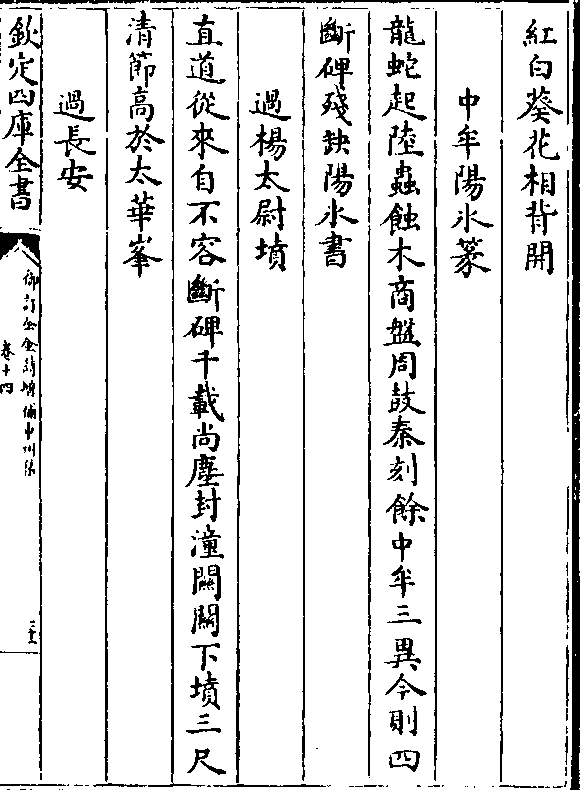 紅白葵花相背開
中牟陽氷篆
龍蛇起陸蟲蝕木商盤周鼓秦刻餘中牟三異今則四
斷碑殘缺陽氷書
過楊太尉墳
直道從來自不容斷碑千載尚塵封潼關關下墳三尺
清節高於太華峯
過長安
欽定四庫全書
御訂全金詩增補中州集
卷十四